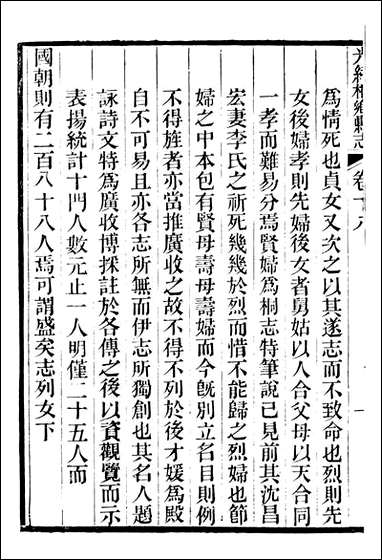 光緒桐鄉縣志 卷十八 一
為情死也貞女又次之以其遂志而不致命也烈則先
女後婦孝則先婦後女者舅姑以人合父母以天合同
一孝而難易分焉賢婦為桐志特筆說已見前其沈昌
宏妻李氏之祈死幾幾於烈而惜不能歸之烈婦也節
婦之中本包有賢母壽母壽婦而今旣別立名目則例
不得旌者亦當推廣收之故不得不列於後才媛為殿
自不可易且亦各志所無而伊志所獨創也其名人題
詠詩文特為廣收博採註於各傳之後以資觀覽而示
表揚統計十門人數元止一人明僅二十五人而
國朝則有二百八十八人焉可謂盛矣志列女下